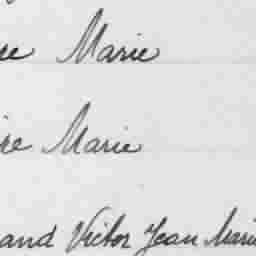 re Marie
ire Marie
and Victor Jean Marie